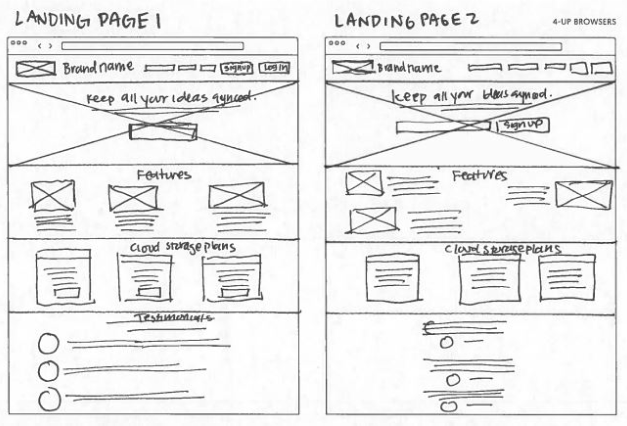 LANDING PAGE 1
Brand name
Sign up
Log in
Keep all your ideas synced.
Features
Cloud storage plans
Testimonials
LANDING PAGE 2
4-UP BROWSERS
Brand name
Keep all your ideas synced.
Sign up
Features
Cloud storage plans